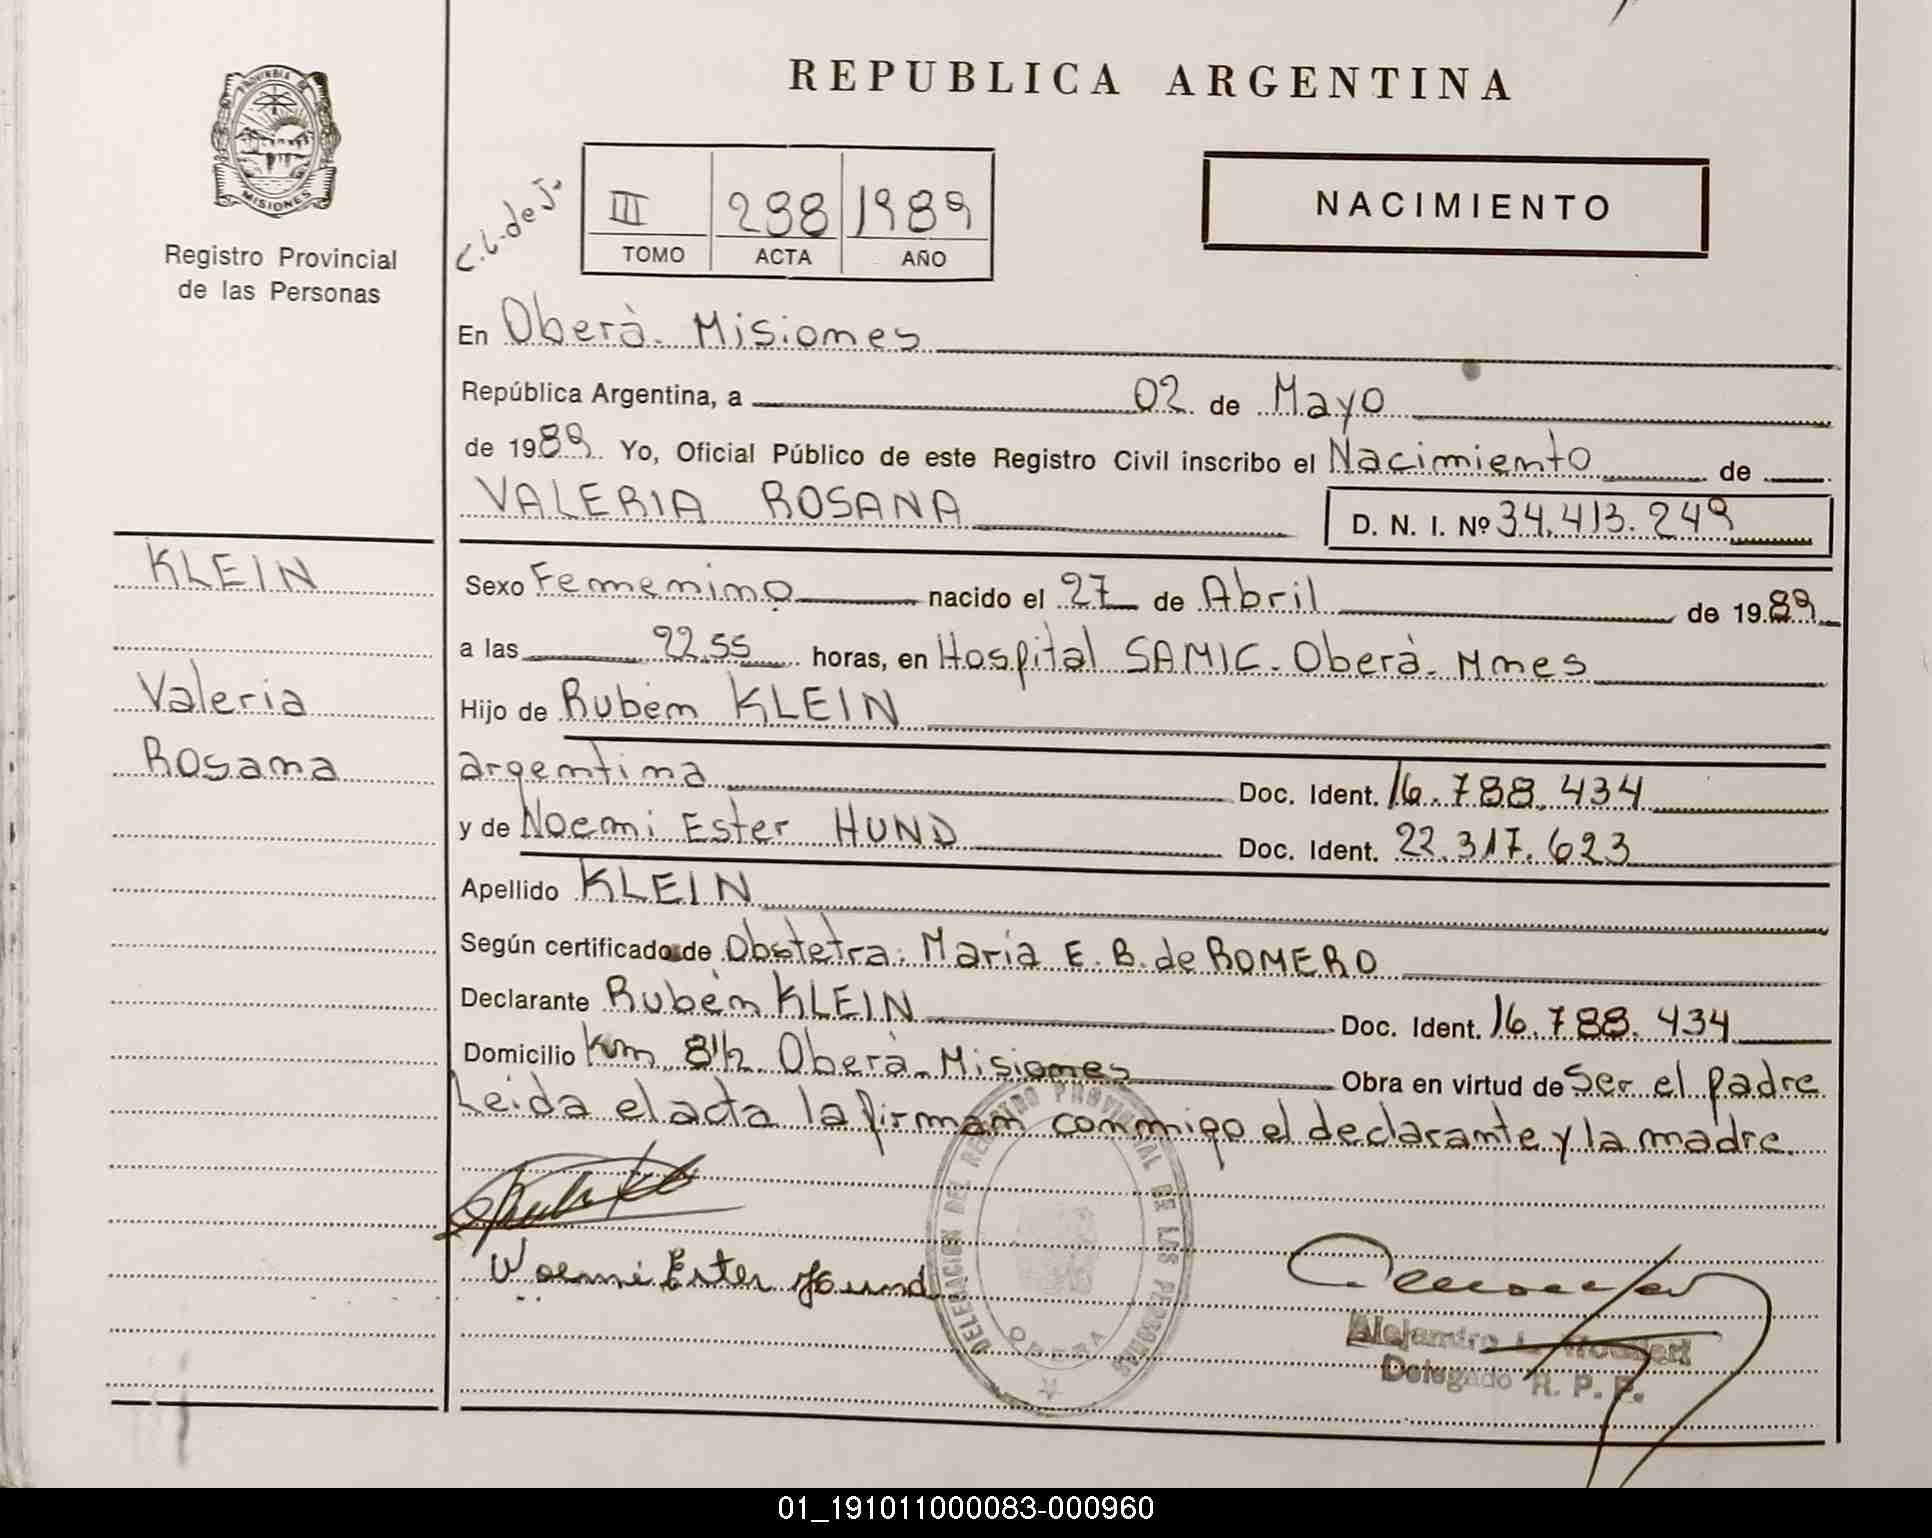 REPUBLICA ARGENTINA
PROVINCIA DE
MISIONES
Registro Provincial
de las Personas
C.L. de J.
III 298 1989
TOMO ACTA AÑO
NACIMIENTO
En Oberà - Misiones
República Argentina, a 02 de Mayo
de 1989 Yo, Oficial Público de este Registro Civil inscribo el Nacimiento de
VALERIA ROSANA D. N. I. Nº 34.413.249
KLEIN
Valeria
Rosana
Sexo Femenino nacido el 27 de Abril de 1989
a las 22.55 horas, en Hospital SAMIC - Oberà - Mnes
Hijo de Rubén KLEIN
argentina Doc. Ident. 16.788.434
y de Noemi Ester HUND Doc. Ident. 22.317.623
Apellido KLEIN
Según certificado de Obstetra: María E. B. de ROMERO
Declarante Rubén KLEIN Doc. Ident. 16.788.434
Domicilio Km 8 1/2 Oberà - Misiones Obra en virtud de Ser el padre
Leida el acta la firman conmigo el declarante y la madre.
Noemi Ester Hund
DELEGACION DEL REGISTRO PROVINCIAL DE LAS PERSONAS
OBERA
Alejandro
Delegado R. P. P.
01_191011000083-000960